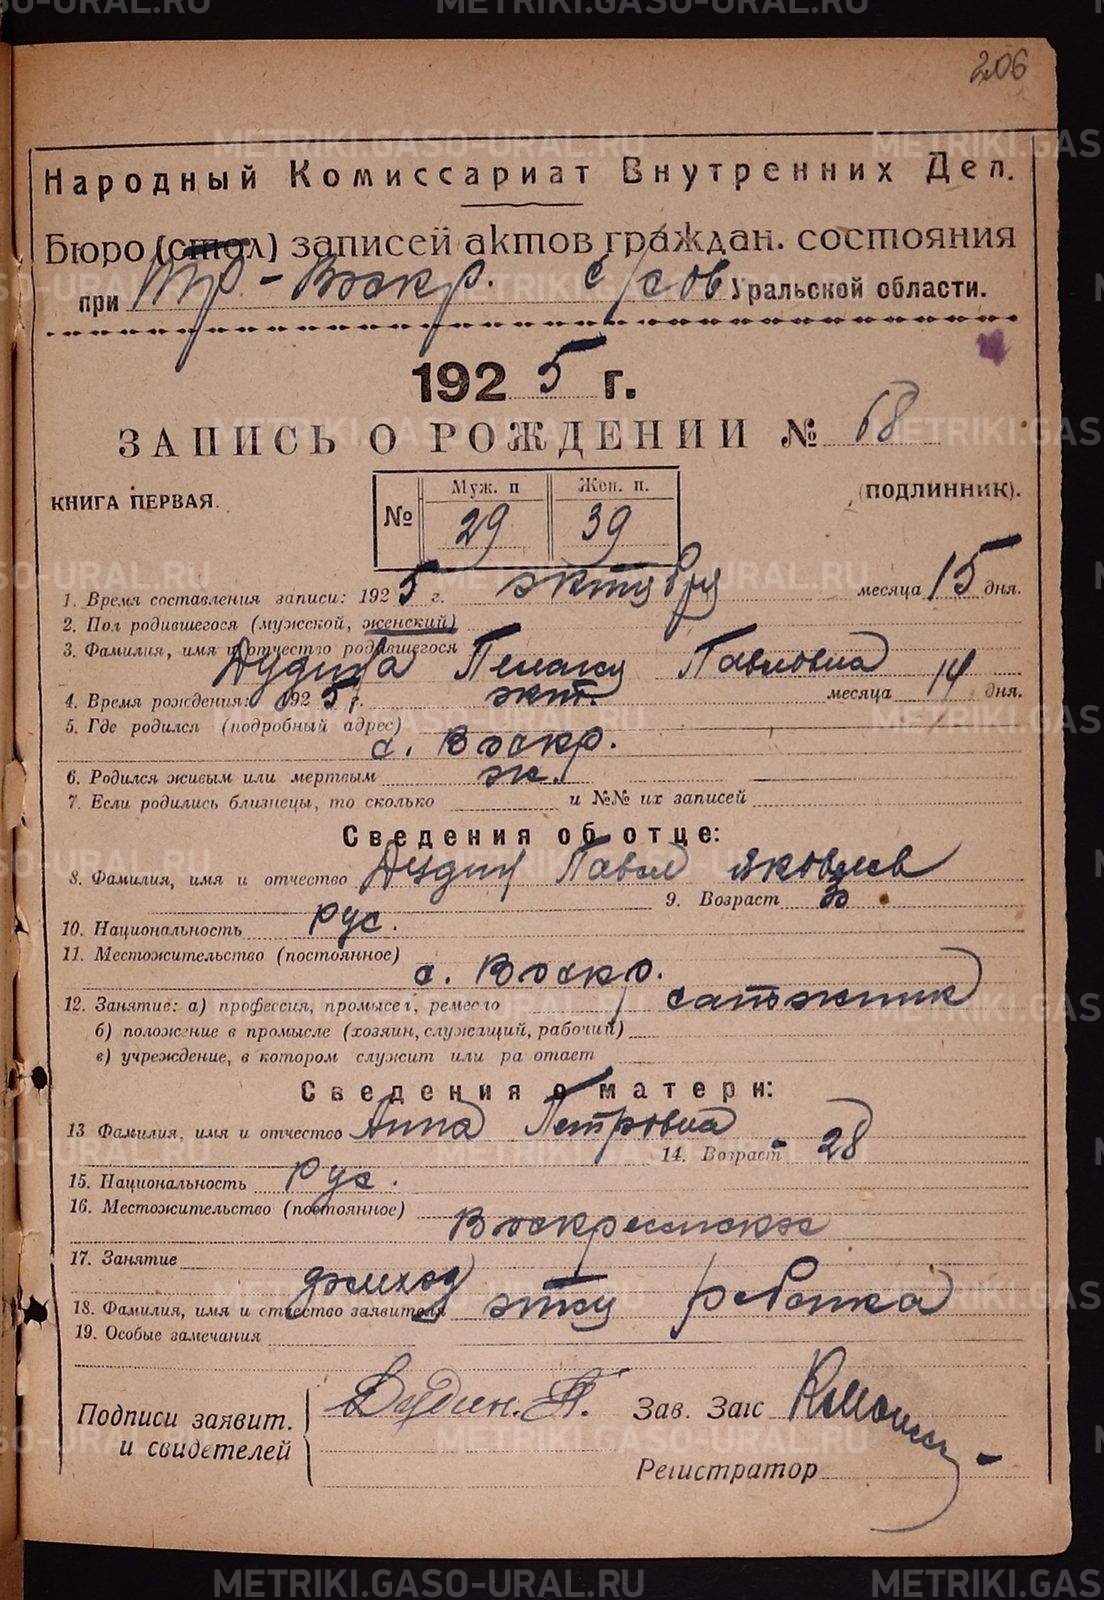 206
Народный Комиссариат Внутренних Дел.
Бюро (стол) записей актов граждан. состояния
при Тр-Воскр. с/сов Уральской области.
1925 г.
ЗАПИСЬ О РОЖДЕНИИ № 68
КНИГА ПЕРВАЯ.
(ПОДЛИННИК).
№ Муж. п Жен. п.
29 39
1. Время составления записи: 1925 г. октября месяца 15 дня.
2. Пол родившегося (мужской, женский)
3. Фамилия, имя и отчество родившегося
Дудина Пелагея Павловна
4. Время рождения: 1925 г. окт. месяца 14 дня.
5. Где родился (подробный адрес)
с. Воскр.
6. Родился живым или мертвым ж.
7. Если родились близнецы, то сколько и №№ их записей
Сведения об отце:
8. Фамилия, имя и отчество Дудин Павел Яковлев
9. Возраст
10. Национальность рус.
11. Местожительство (постоянное)
с. Воскр.
12. Занятие: а) профессия, промысел, ремесло сапожник
б) положение в промысле (хозяин, служащий, рабочий)
в) учреждение, в котором служит или ра отает
Сведения о матери:
13 Фамилия, имя и отчество Анна Петровна
14. Возраст 28
15. Национальность рус.
16. Местожительство (постоянное)
Воскресенское
17. Занятие
домход
18. Фамилия, имя и отчество заявителя отец ребенка
19. Особые замечания
Подписи заявит. Дудин. П. Зав. Загс
и свидетелей
Регистратор
METRIKI.GASO-URAL.RU